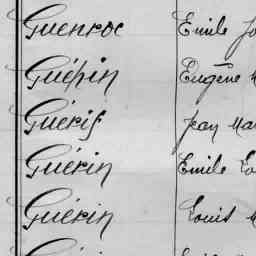 Guenroc Emile Jo
Guépin Eugène M
Guéris Jean Mar
Guérin Emile Lo
Guérin Louis M